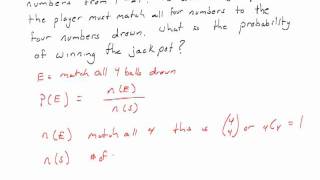 numbers from 1
the player must match all four numbers to the
four numbers drawn. What is the probability
of winning the jackpot?
E = match all 4 balls drawn
P(E) = n(E) / n(S)
n(E) match all 4 this is (4 4) or 4C4 = 1
n(S) # of